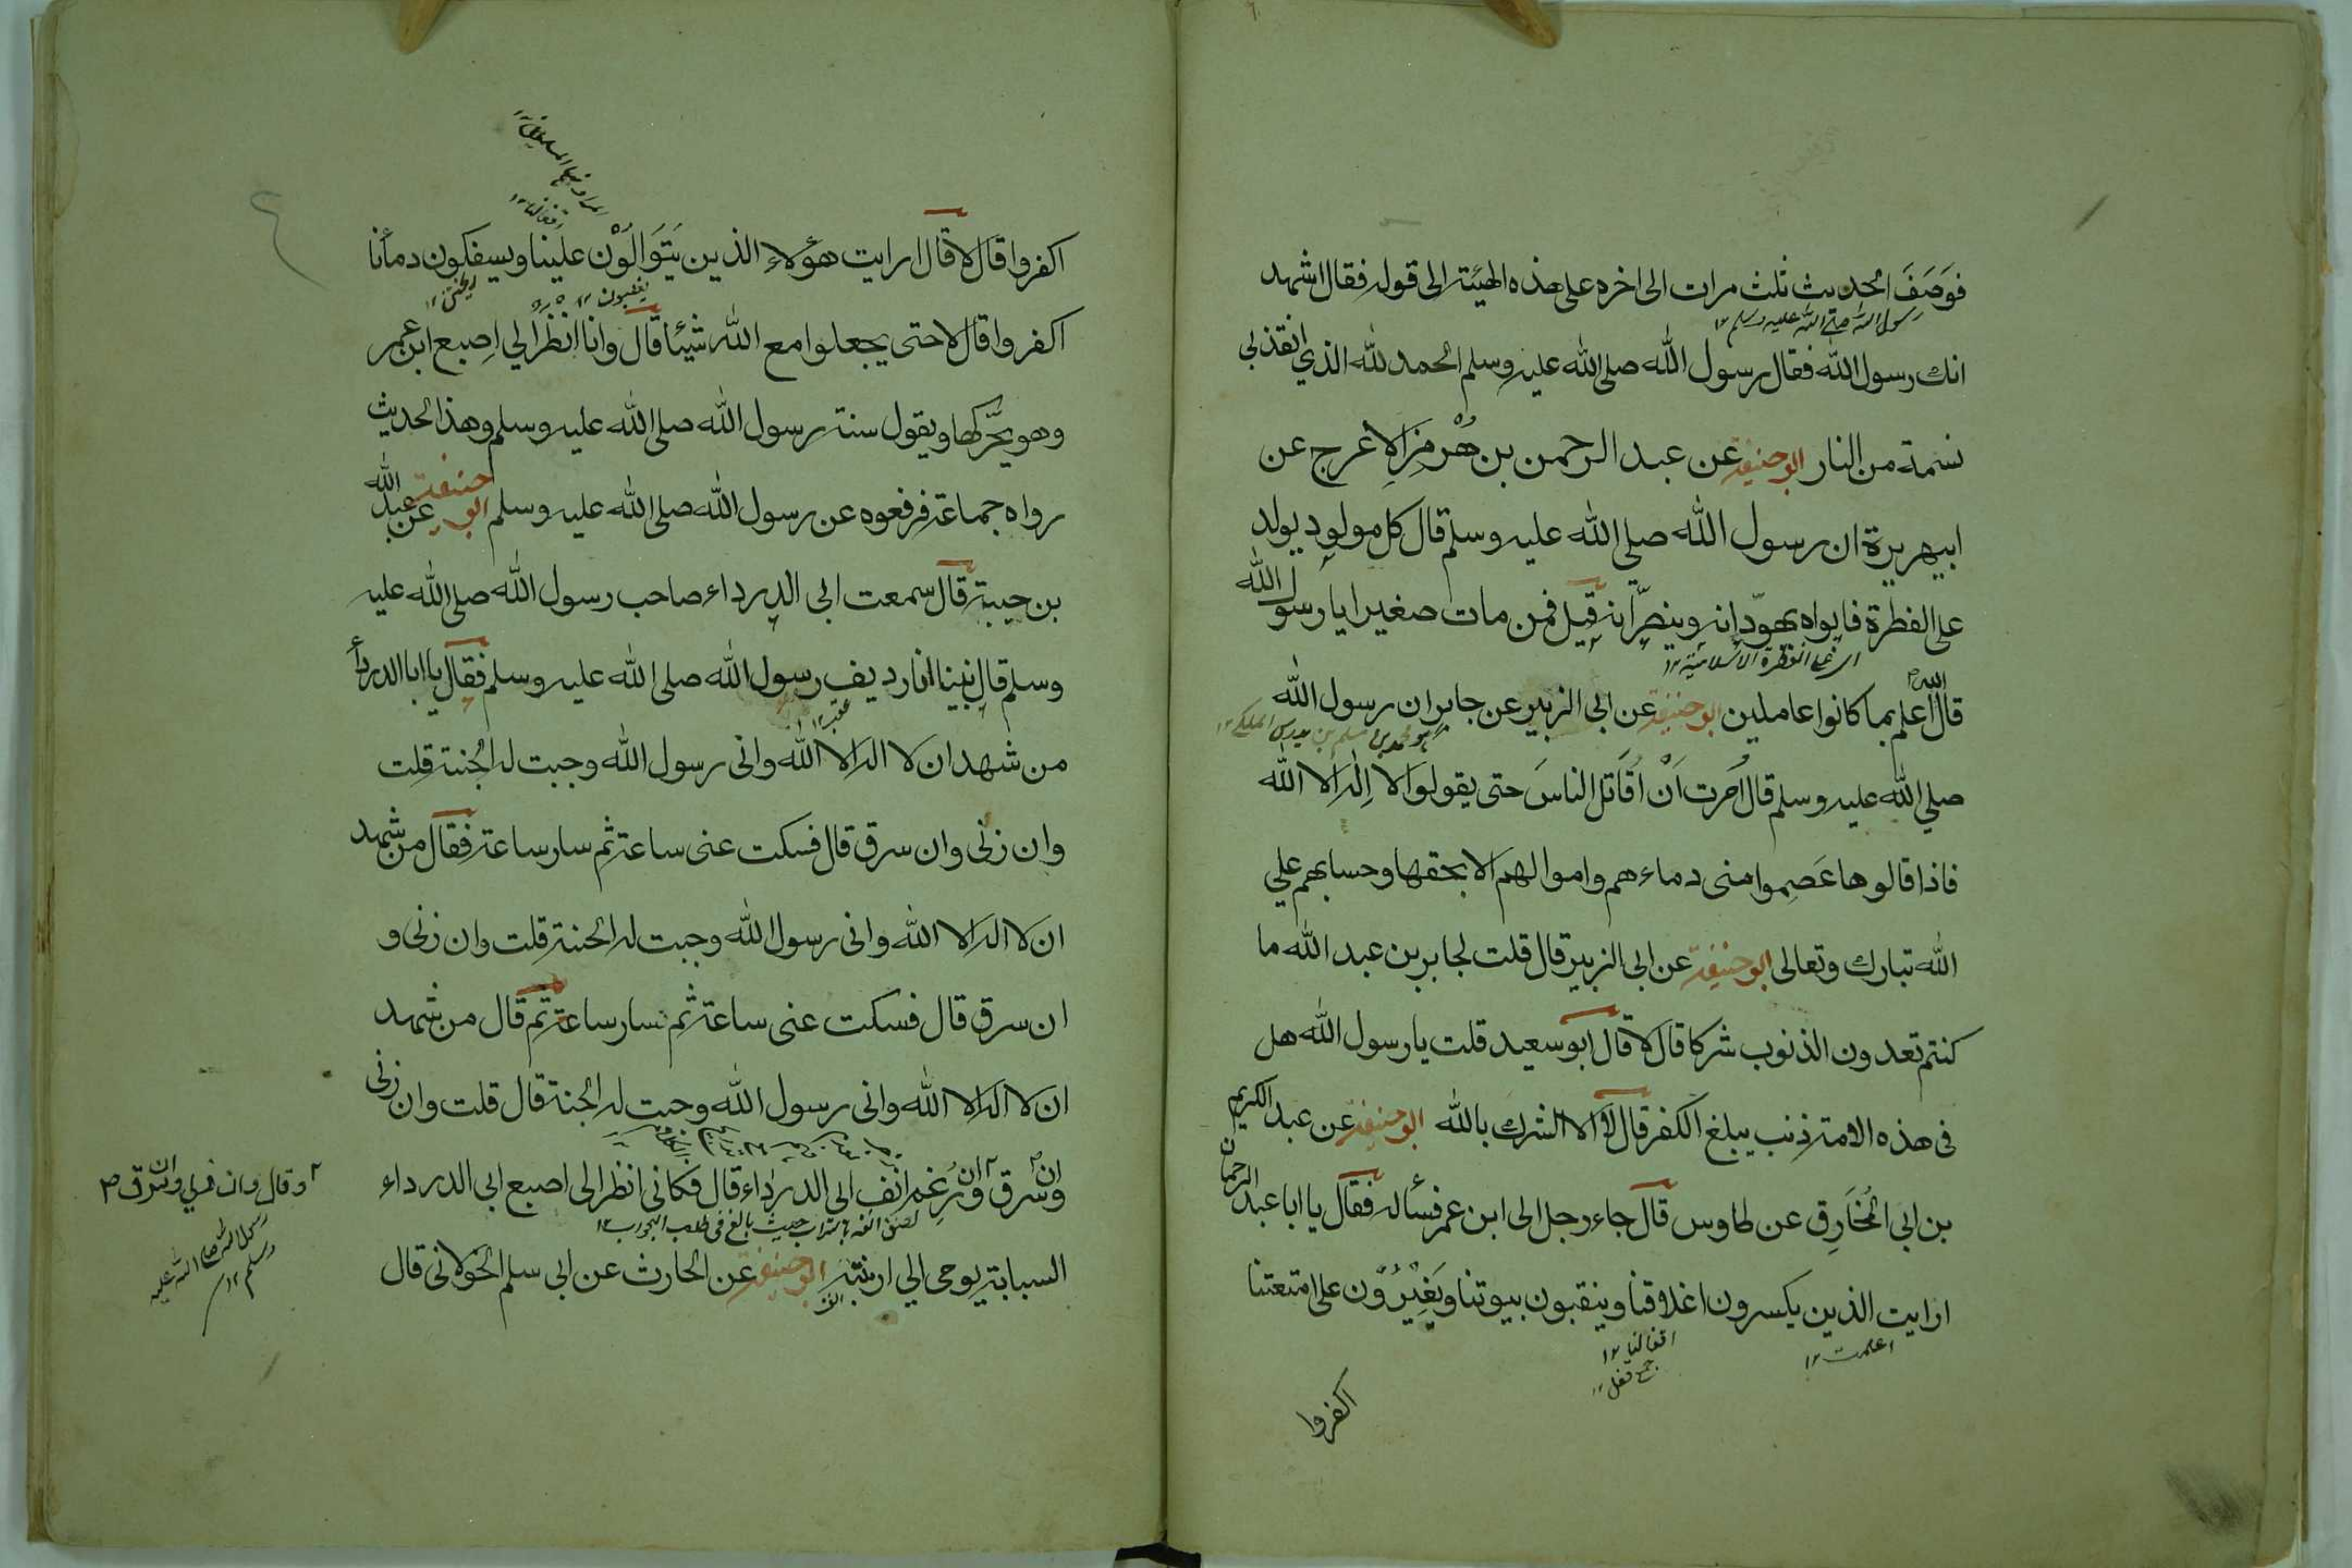 فوَصَفَ الحديث ثلث مرات الى اخره على هذه الهيئة الى قوله فقال اشهد
رسول الله صلى الله عليه وسلم ١٢
انك رسول الله فقال رسول الله صلى الله عليه وسلم الحمد لله الذي انقذ بي
نسمة من النار ابو حنيفة عن عبد الرحمن بن هُرْمِز الاعرج عن
ابيهريرة ان رسول الله صلى الله عليه وسلم قال كل مولود يولد
على الفطرة فابواه يهوّدانه وينصّرانه قيل فمن مات صغيرا يا رسول الله
اى على الفطرة الاسلامية ١٢
قال الله اعلم بما كانوا عاملين ابو حنيفة عن ابى الزبير عن جابر ان رسول الله
هو محمد بن مسلم بن تدرس المكي ١٢
صلي الله عليه وسلم قال اُمرت اَنْ اُقاتل الناسَ حتى يقولوا لا اِله الا الله
فاذا قالوها عَصِموا منى دماءهم واموالهم الا بحقها وحسابهم علي
الله تبارك وتعالى ابو حنيفة عن ابى الزبير قال قلت لجابر بن عبد الله ما
كنتم تعدون الذنوب شركا قال لا قال ابو سعيد قلت يا رسول الله هل
فى هذه الامة ذنب يبلغ الكفر قال لا الا الشرك بالله ابو حنيفة عن عبد الكريم
بن ابى المُخَارِق عن طاوس قال جاء رجل الى ابن عمر فسأله فقال يا ابا عبد الرحمان
ارايت الذين يكسرون اغلاقنا وينقبون بيوتنا ويَغِيْرُوْن على امتعتنا
اعلمت ١٢
اقفالنا ١٢
جمع قفل ١٢
اكفروا
اقفالنا ١٢
اكفروا قال لا قال ارايت هؤلاء الذين يَتَوَالَوْن علينا ويسفكون دمأنا
اكفروا قال لا حتى يجعلوا مع الله شيئا قال وانا انظر الي اِصبع ابن عمر
وهو يحرّكها ويقول سنة رسول الله صلى الله عليه وسلم وهذا الحديث
رواه جماعة فرفعوه عن رسول الله صلى الله عليه وسلم ابو حنيفة عن عبد الله
بن حبيبة قال سمعت ابى الدرداء صاحب رسول الله صلى الله عليه
وسلم قال بينا انا رديف رسول الله صلى الله عليه وسلم فقال يا ابا الدرداء
من شهد ان لا اله الا الله وانى رسول الله وجبت له الجنة قلت
وان زنى وان سرق قال فسكت عنى ساعة ثم سار ساعة فقال من شهد
ان لا اله الا الله وانى رسول الله وجبت له الجنة قلت وان زنى و
ان سرق قال فسكت عنى ساعة ثم سار ساعة ثم قال من شهد
ان لا اله الا الله وانى رسول الله وجبت له الجنة قال قلت وان زنى
وان سرق وان رُغِم انف ابى الدرداء قال فكانى انظر الى اصبع ابى الدرداء
السبابة يوحى الي ارنبته ابو حنيفة عن الحارث عن ابى سلم الخولانى قال
انفه
رسول الله صلى الله عليه
وسلم ١٢